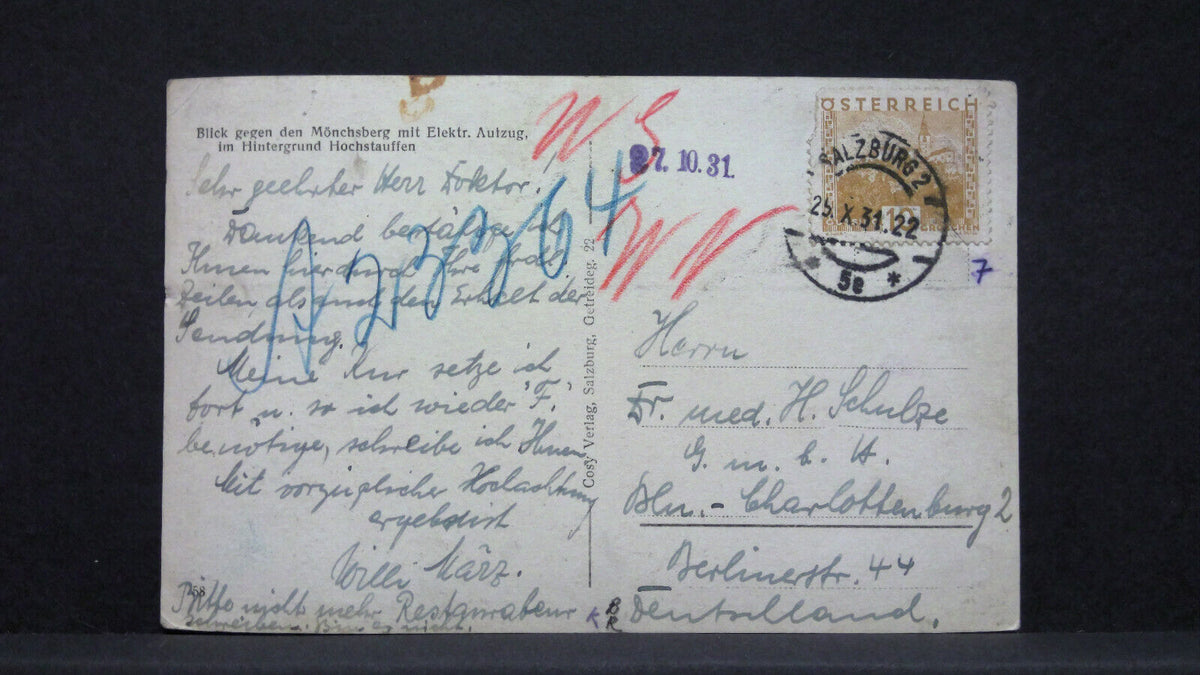 Blick gegen den Mönchsberg mit Elektr. Aufzug,
im Hintergrund Hochstauffen
Sehr geehrter Herr Doktor!
Dankend bestätige ich
Ihnen hierdurch Ihre
Zeilen, als auch den Erhalt der
Sendung.
Meine Kur setze ich
fort u. so ich wieder "F."
benötige, schreibe ich Ihnen.
Mit vorzüglicher Hochachtung
ergebenst
Willi März.
258
Bitte nicht mehr Restaurateur
schreiben. Bin es nicht.
A 23364
Cosy Verlag, Salzburg, Getreideg. 22
W S
27. 10. 31.
W V
ÖSTERREICH
10
GROSCHEN
SALZBURG 2
25. X. 31. 22
* 5e *
7
Herrn
Dr. med. H. Schulze
G. m. b. H.
Bln. - Charlottenburg 2
Berlinerstr. 44
Deutschland.
K
8
R